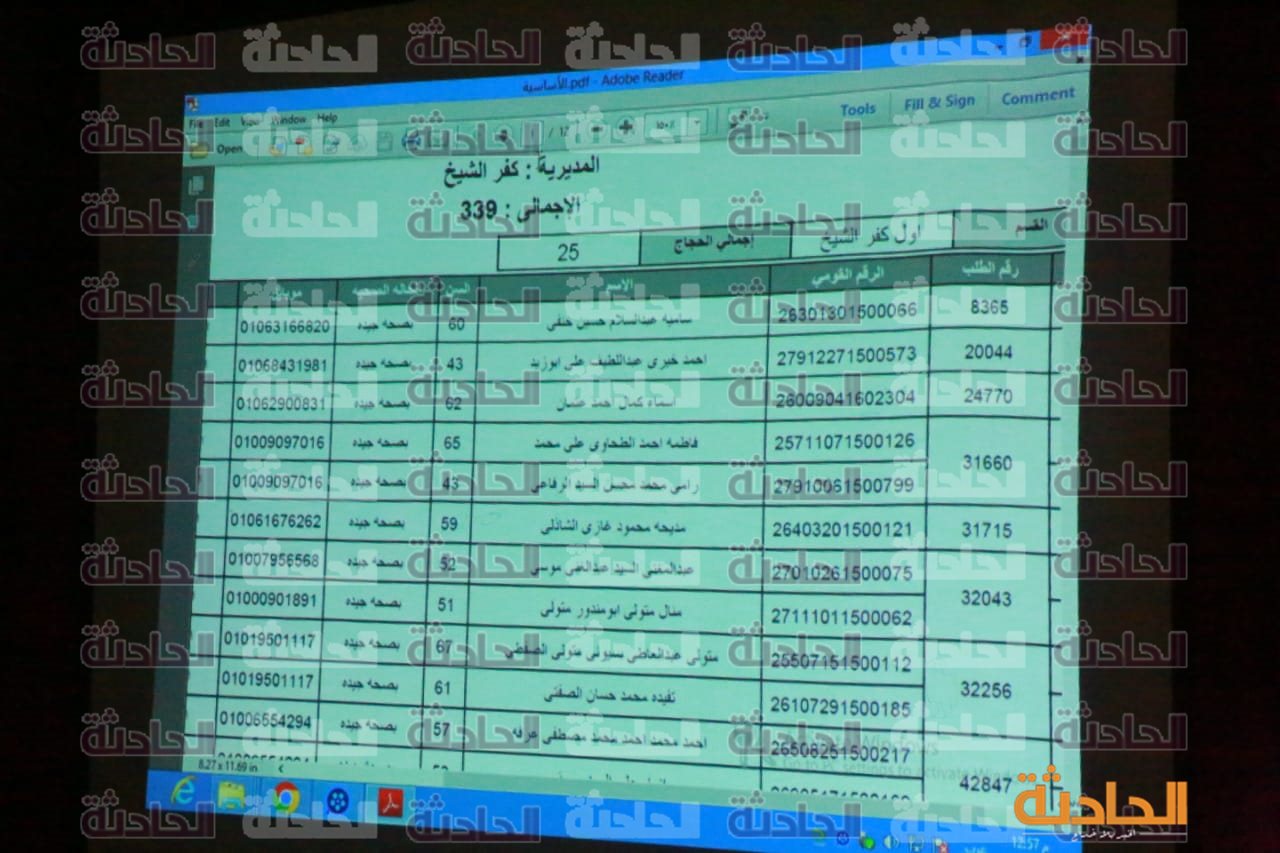 الأساسية.pdf - Adobe Reader
File Edit View Window Help
Open
Tools Fill & Sign Comment
المديرية : كفر الشيخ
الاجمالى : 339
القسم اول كفر الشيخ إجمالي الحجاج 25
رقم الطلب الرقم القومي الاسم السن الحاله الصحيه موبايل
8365 26301301500066 ساميه عبدالسلام حسين حنفى 60 بصحه جيده 01063166820
20044 27912271500573 احمد خيرى عبداللطيف على ابوزيد 43 بصحه جيده 01068431981
24770 26009041602304 اسماء كمال احمد عثمان 62 بصحه جيده 01062900831
31660 25711071500126 فاطمه احمد الطحاوى على محمد 65 بصحه جيده 01009097016
27910061500799 رامى محمد محسن السيد الرفاعى 43 بصحه جيده 01009097016
31715 26403201500121 مديحه محمود غازى الشاذلى 59 بصحه جيده 01061676262
32043 27010261500075 عبدالمغنى السيد عبدالغنى موسى 52 بصحه جيده 01007956568
27111011500062 منال متولى ابومندور متولى 51 بصحه جيده 01000901891
32256 25507151500112 متولى عبدالعاطى بسيونى متولى الصفطى 67 بصحه جيده 01019501117
26107291500185 تفيده محمد حسان الصفتى 61 بصحه جيده 01019501117
42847 26508251500217 احمد محمد احمد محمد مصطفى عرفه 57 بصحه جيده 01006554294
8.27 x 11.69 in
12:57 م
الحادثة